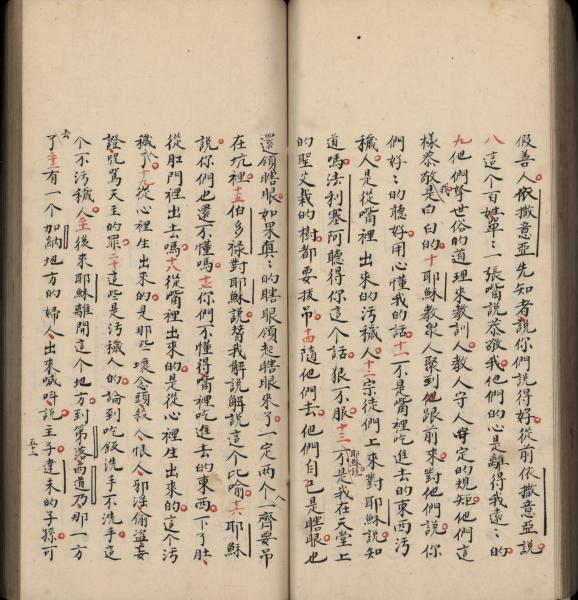 假善人依撒意亞先知者說你們說得好從前依撒意亞說
八這个百姓單〻一張嘴說恭敬我他們的心是離得我遠〻的
九他們拏世俗的道理來教訓人教人守人毋定的規矩他們這
樣恭敬我是白白的十耶穌教衆人聚到他跟前來對他們說你
們好〻的聽好用心懂我的話十一不是嘴裡吃進去的東西污
穢人是從嘴裡出來的污穢人十二宗徒們上來對耶穌說知
道嗎法利塞阿聽得你這个話狠不服十三耶穌說不是我在天堂上
的聖父栽的樹都要拔吊十四隨他們去他們自己是瞎眼也
還領瞎眼如果真〻的瞎眼領起瞎眼來了一定两个人一齊要吊
在坑裡十五伯多禄對耶穌說替我解說解說這个比喻十六耶穌
說你們也還不懂嗎十七你們不懂得嘴裡吃進去的東西一下了肚
從肛門裡出去嗎十八從嘴裡出來的是從心裡生出來的這个污
穢人十九從心裡生出來的是那些壞念頭殺人恨人邪淫偷盜妄
證咒罵天主的罪二十這些是污穢人的論到吃飯洗手不洗手這
个不污穢人二十一後來耶穌離開這个地方到第落西道乃那一方
去了二十二有一个加納地方的婦人出來喊呌說主子達未的子孫可
五十一